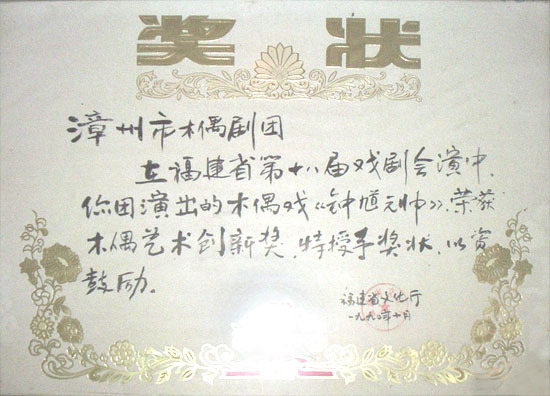 奖状
漳州市木偶剧团
在福建省第十八届戏剧会演中,
你团演出的木偶戏《钟馗元帅》,荣获
木偶艺术创新奖,特授予奖状,以资
鼓励。
福建省文化厅
一九九〇年十月